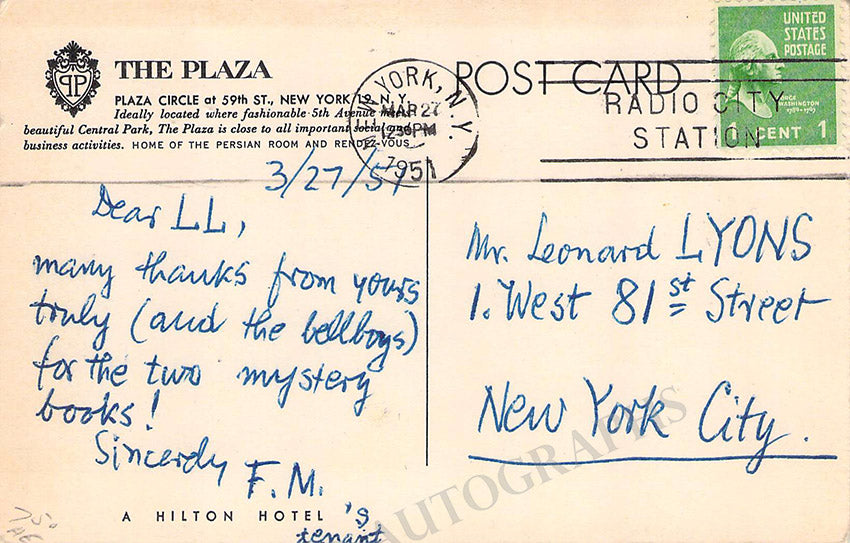 THE PLAZA
PLAZA CIRCLE at 59th ST., NEW YORK 19, N.Y.
Ideally located where fashionable 5th Avenue meets
beautiful Central Park, The Plaza is close to all important social and
business activities. HOME OF THE PERSIAN ROOM AND RENDEZ-VOUS
POST CARD
NEW YORK, N.Y.
MAR 27
1951
RADIO CITY
STATION
UNITED
STATES
POSTAGE
GEORGE
WASHINGTON
1789-1797
1 CENT 1
3/27/51
Dear LL,
many thanks from yours
truly (and the bellboys)
for the two mystery
books!
Sincerely
F.M.
A HILTON HOTEL 's
tenant
Mr. Leonard LYONS
1. West 81st Street
New York City.
AUTOGRAPHS